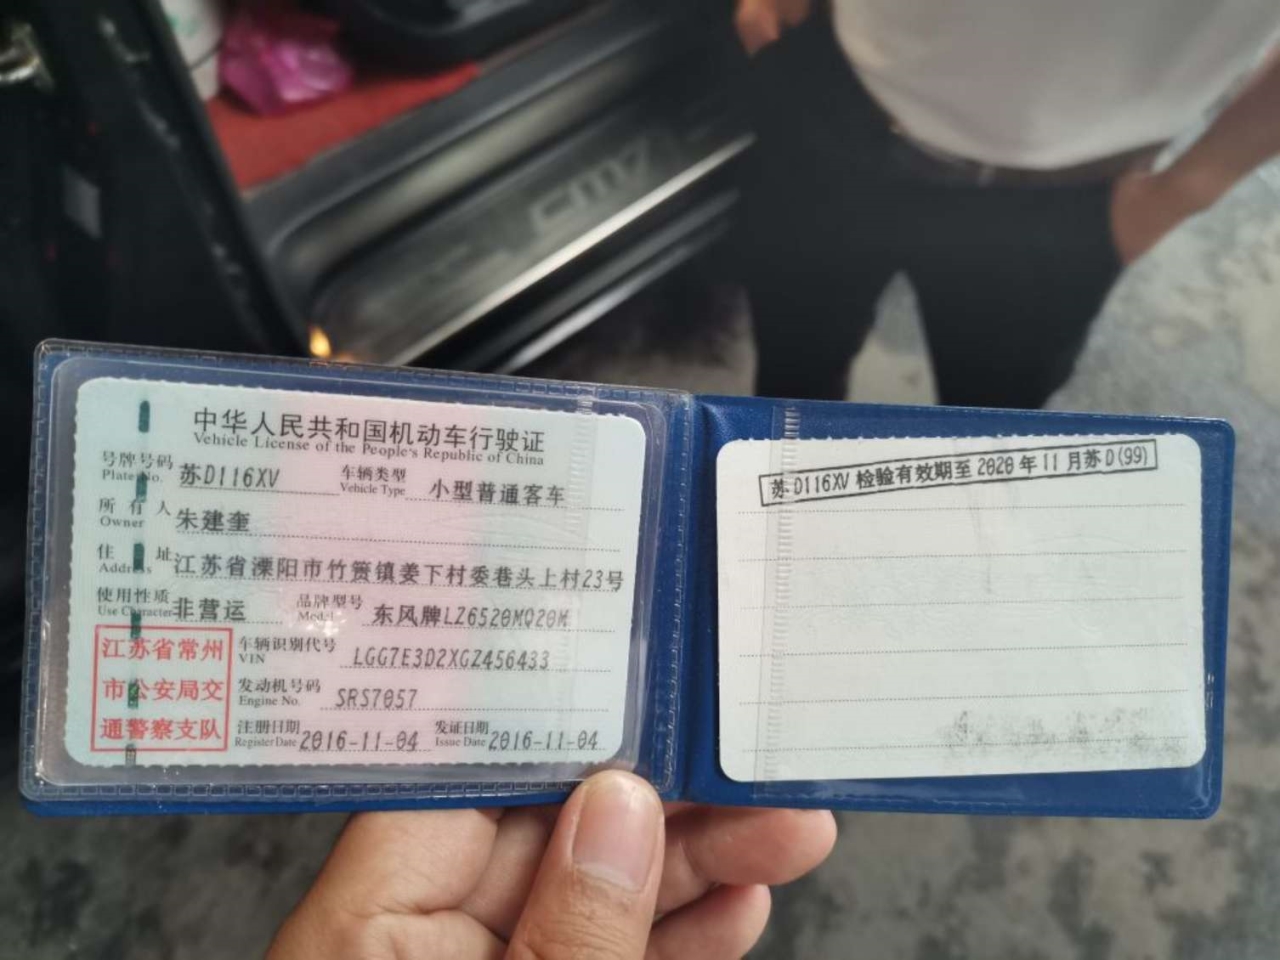 CM7
中华人民共和国机动车行驶证
Vehicle License of the People's Republic of China
号牌号码 苏D116XV 车辆类型 小型普通客车
Plate No. Vehicle Type
所有人 朱建奎
Owner
住址 江苏省溧阳市竹箦镇姜下村委巷头上村23号
Address
使用性质 非营运 品牌型号 东风牌LZ6520MQ20M
Use Character Model
江苏省常州
市公安局交
通警察支队
车辆识别代号 LGG7E3D2XGZ456433
VIN
发动机号码 SRS7057
Engine No.
注册日期 2016-11-04 发证日期 2016-11-04
Register Date Issue Date
苏D116XV 检验有效期至 2020 年 11 月苏D(99)